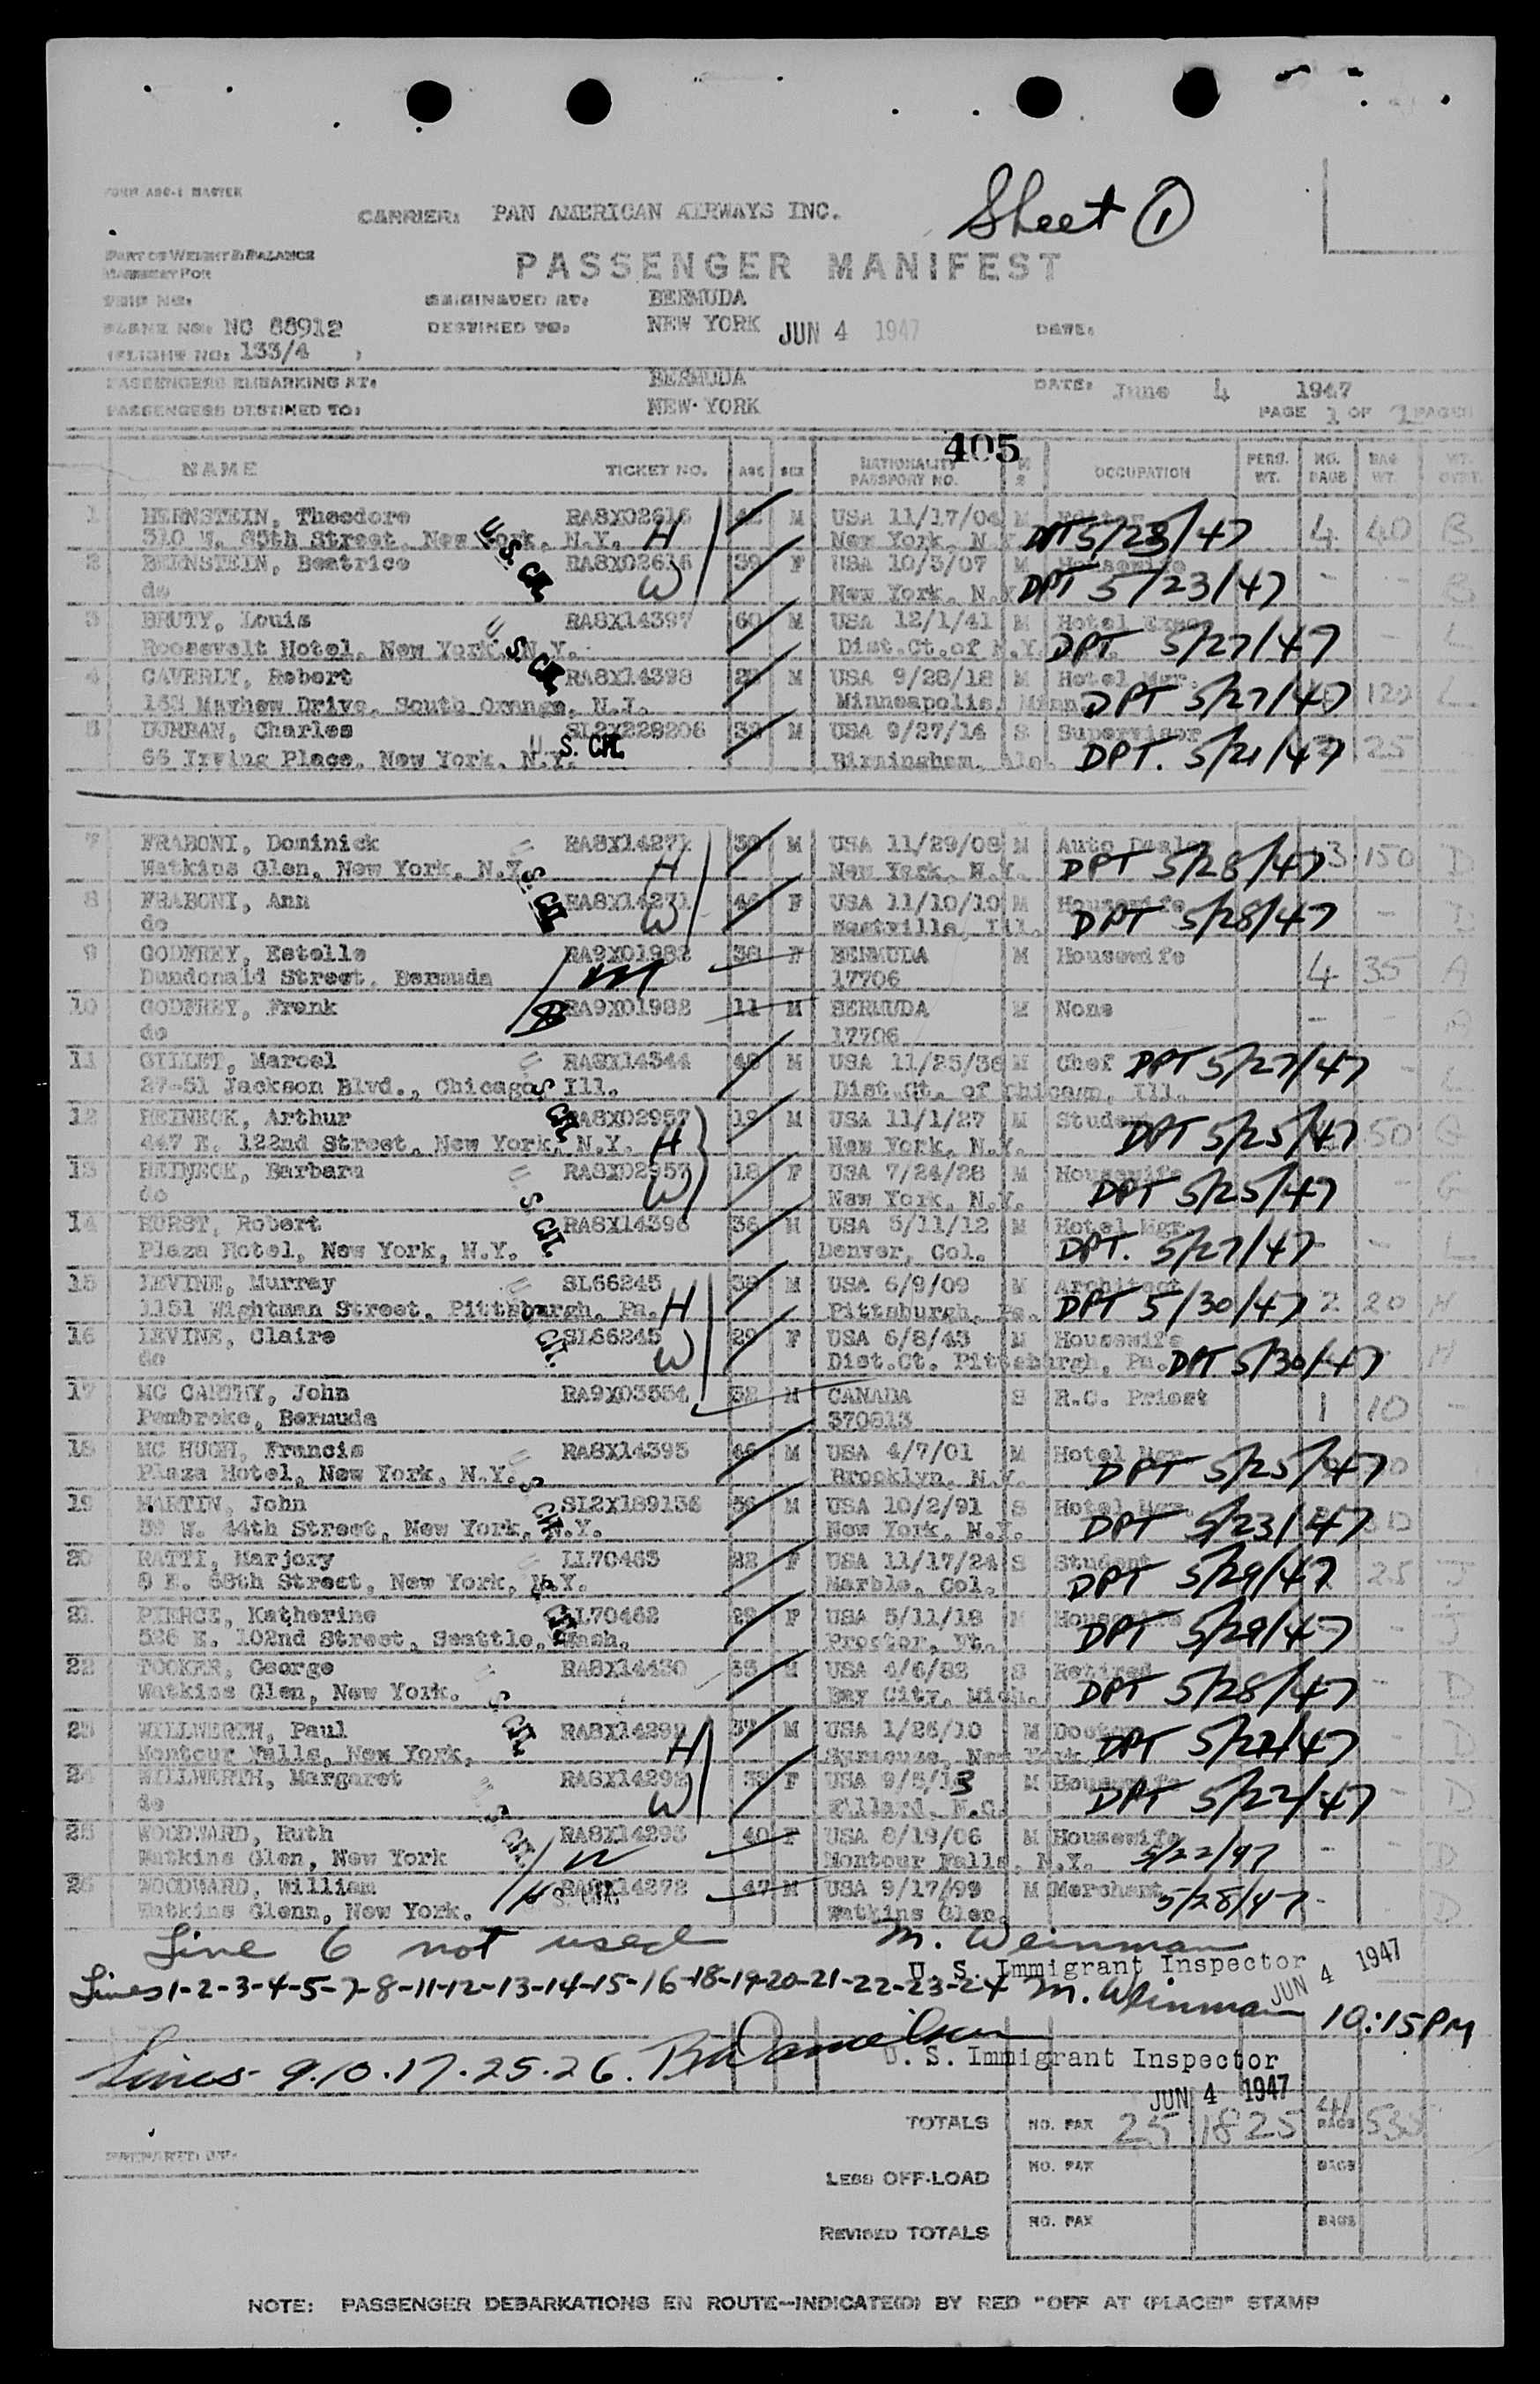 FORM ABC-1 MASTER
CARRIER: PAN AMERICAN AIRWAYS INC.
Sheet 1
PART OF WEIGHT & BALANCE
MANIFEST FOR
PASSENGER MANIFEST
TRIP NO:
ORIGINATED AT: BERMUDA
PLANE NO: NC 88912
DESTINED TO: NEW YORK JUN 4 1947 DATE:
FLIGHT NO: 133/4
PASSENGERS EMBARKING AT: BERMUDA DATE: June 4 1947
PASSENGERS DESTINED TO: NEW YORK PAGE 1 OF PAGES
405
NAME TICKET NO. AGE SEX NATIONALITY PASSPORT NO. M S OCCUPATION PERS. WT. NO. BAGS BAG WT.
1 BERNSTEIN, Theodore RA8X02616 M USA 11/17/04 M Editor 4 40 B
310 W. 85th Street, New York, N.Y. H New York, N.Y. DPT 5/23/47
2 BERNSTEIN, Beatrice RA8X02616 39 F USA 10/3/07 M Housewife - - B
do W New York, N.Y. DPT 5/23/47
3 BRUTY, Louis RA8X14397 60 M USA 12/1/41 M Hotel - L
Roosevelt Hotel, New York, N.Y. Dist.Ct.of N.Y. DPT 5/27/47
4 CAVERLY, Robert RA8X14398 M USA 9/28/18 M Hotel Mgr. 120 L
Mayhew Drive, South Orange, N.J. Minneapolis, Minn. DPT 5/27/47
5 DURBAN, Charles SL2X229206 M USA 9/27/14 S Supervisor 25
66 Irving Place, New York, N.Y. U.S. CIT. Birmingham, Ala. DPT. 5/21/47
7 FRABONI, Dominick RA8X14271 M USA 11/29/08 M Auto Dealer 3 150 D
Watkins Glen, New York, N.Y. H New York, N.Y. DPT 5/28/47
8 FRABONI, Ann RA8X14271 F USA 11/10/10 M Housewife - D
do W Westville, Ill. DPT 5/28/47
9 GODFREY, Estelle RA9X01982 38 F BERMUDA M Housewife 4 35 A
Dundonald Street, Bermuda M 17706
10 GODFREY, Frank RA9X01982 11 M BERMUDA M None - - A
do 17706
11 GILLET, Marcel RA8X14344 M USA 11/25/36 M Chef DPT 5/27/47 - L
27-51 Jackson Blvd., Chicago, Ill. Dist.Ct. of Chicago, Ill.
12 HEINECK, Arthur RA8X02957 19 M USA 11/1/27 M Student 50 G
447 E. 122nd Street, New York, N.Y. H New York, N.Y. DPT 5/25/47
13 HEINECK, Barbara RA8X02957 18 F USA 7/24/28 M Housewife - G
do W New York, N.Y. DPT 5/25/47
14 HURST, Robert RA8X14396 M USA 5/11/12 M Hotel Mgr. - L
Plaza Hotel, New York, N.Y. Denver, Col. DPT. 5/27/47
15 LEVINE, Murray SL66245 38 M USA 6/9/09 M Architect 2 20 H
1151 Wightman Street, Pittsburgh, Pa. H Pittsburgh, Pa. DPT 5/30/47
16 LEVINE, Claire SL66245 29 F USA 6/8/43 M Housewife H
do W Dist.Ct. Pittsburgh, Pa. DPT 5/30/47
17 MC CARTHY, John RA9X03534 32 M CANADA S R.C. Priest 1 10 -
Pembroke, Bermuda 370813
18 MC HUGH, Francis RA8X14395 46 M USA 4/7/01 M Hotel Mgr.
Plaza Hotel, New York, N.Y. Brooklyn, N.Y. DPT 5/25/47
19 MARTIN, John SL2X189136 56 M USA 10/2/91 S Hotel Mgr.
W. 44th Street, New York, N.Y. New York, N.Y. DPT 5/23/47
20 RATTI, Marjory LL70463 22 F USA 11/17/24 S Student 25 J
8 E. 68th Street, New York, N.Y. Marble, Col. DPT 5/29/47
21 PIERCE, Katherine LL70462 29 F USA 5/11/18 M Housewife - J
526 E. 102nd Street, Seattle, Wash. Proctor, Vt. DPT 5/29/47
22 TOCKER, George RA8X14430 M USA 4/6/82 S Retired - D
Watkins Glen, New York. Bay City, Mich. DPT 5/28/47
23 WILLWERTH, Paul RA8X14292 37 M USA 1/26/10 M Doctor - D
Montour Falls, New York, H Syracuse, New York DPT 5/22/47
24 WILLWERTH, Margaret RA8X14292 F USA 9/5/13 M Housewife - D
do W Willard, N.C. DPT 5/22/47
25 WOODWARD, Ruth RA8X14293 40 F USA 8/19/06 M Housewife - - D
Watkins Glen, New York W Montour Falls, N.Y. 5/22/47
26 WOODWARD, William RA8X14272 47 M USA 9/17/99 M Merchant - D
Watkins Glenn, New York. H Watkins Glen, 5/28/47
Line 6 not used M. Weinman
U. S. Immigrant Inspector JUN 4 1947
Lines 1-2-3-4-5-7-8-11-12-13-14-15-16-18-19-20-21-22-23-24 M. Weinman 10:15 PM
Lines - 9.10.17.25.26.
U. S. Immigrant Inspector
JUN 4 1947
TOTALS NO. PAX 25 1825 41 BAGS 535
PREPARED BY:
LESS OFF-LOAD NO. PAX BAGS
REVISED TOTALS NO. PAX BAGS
NOTE: PASSENGER DEBARKATIONS EN ROUTE—INDICATE(D) BY RED "OFF AT (PLACE)" STAMP